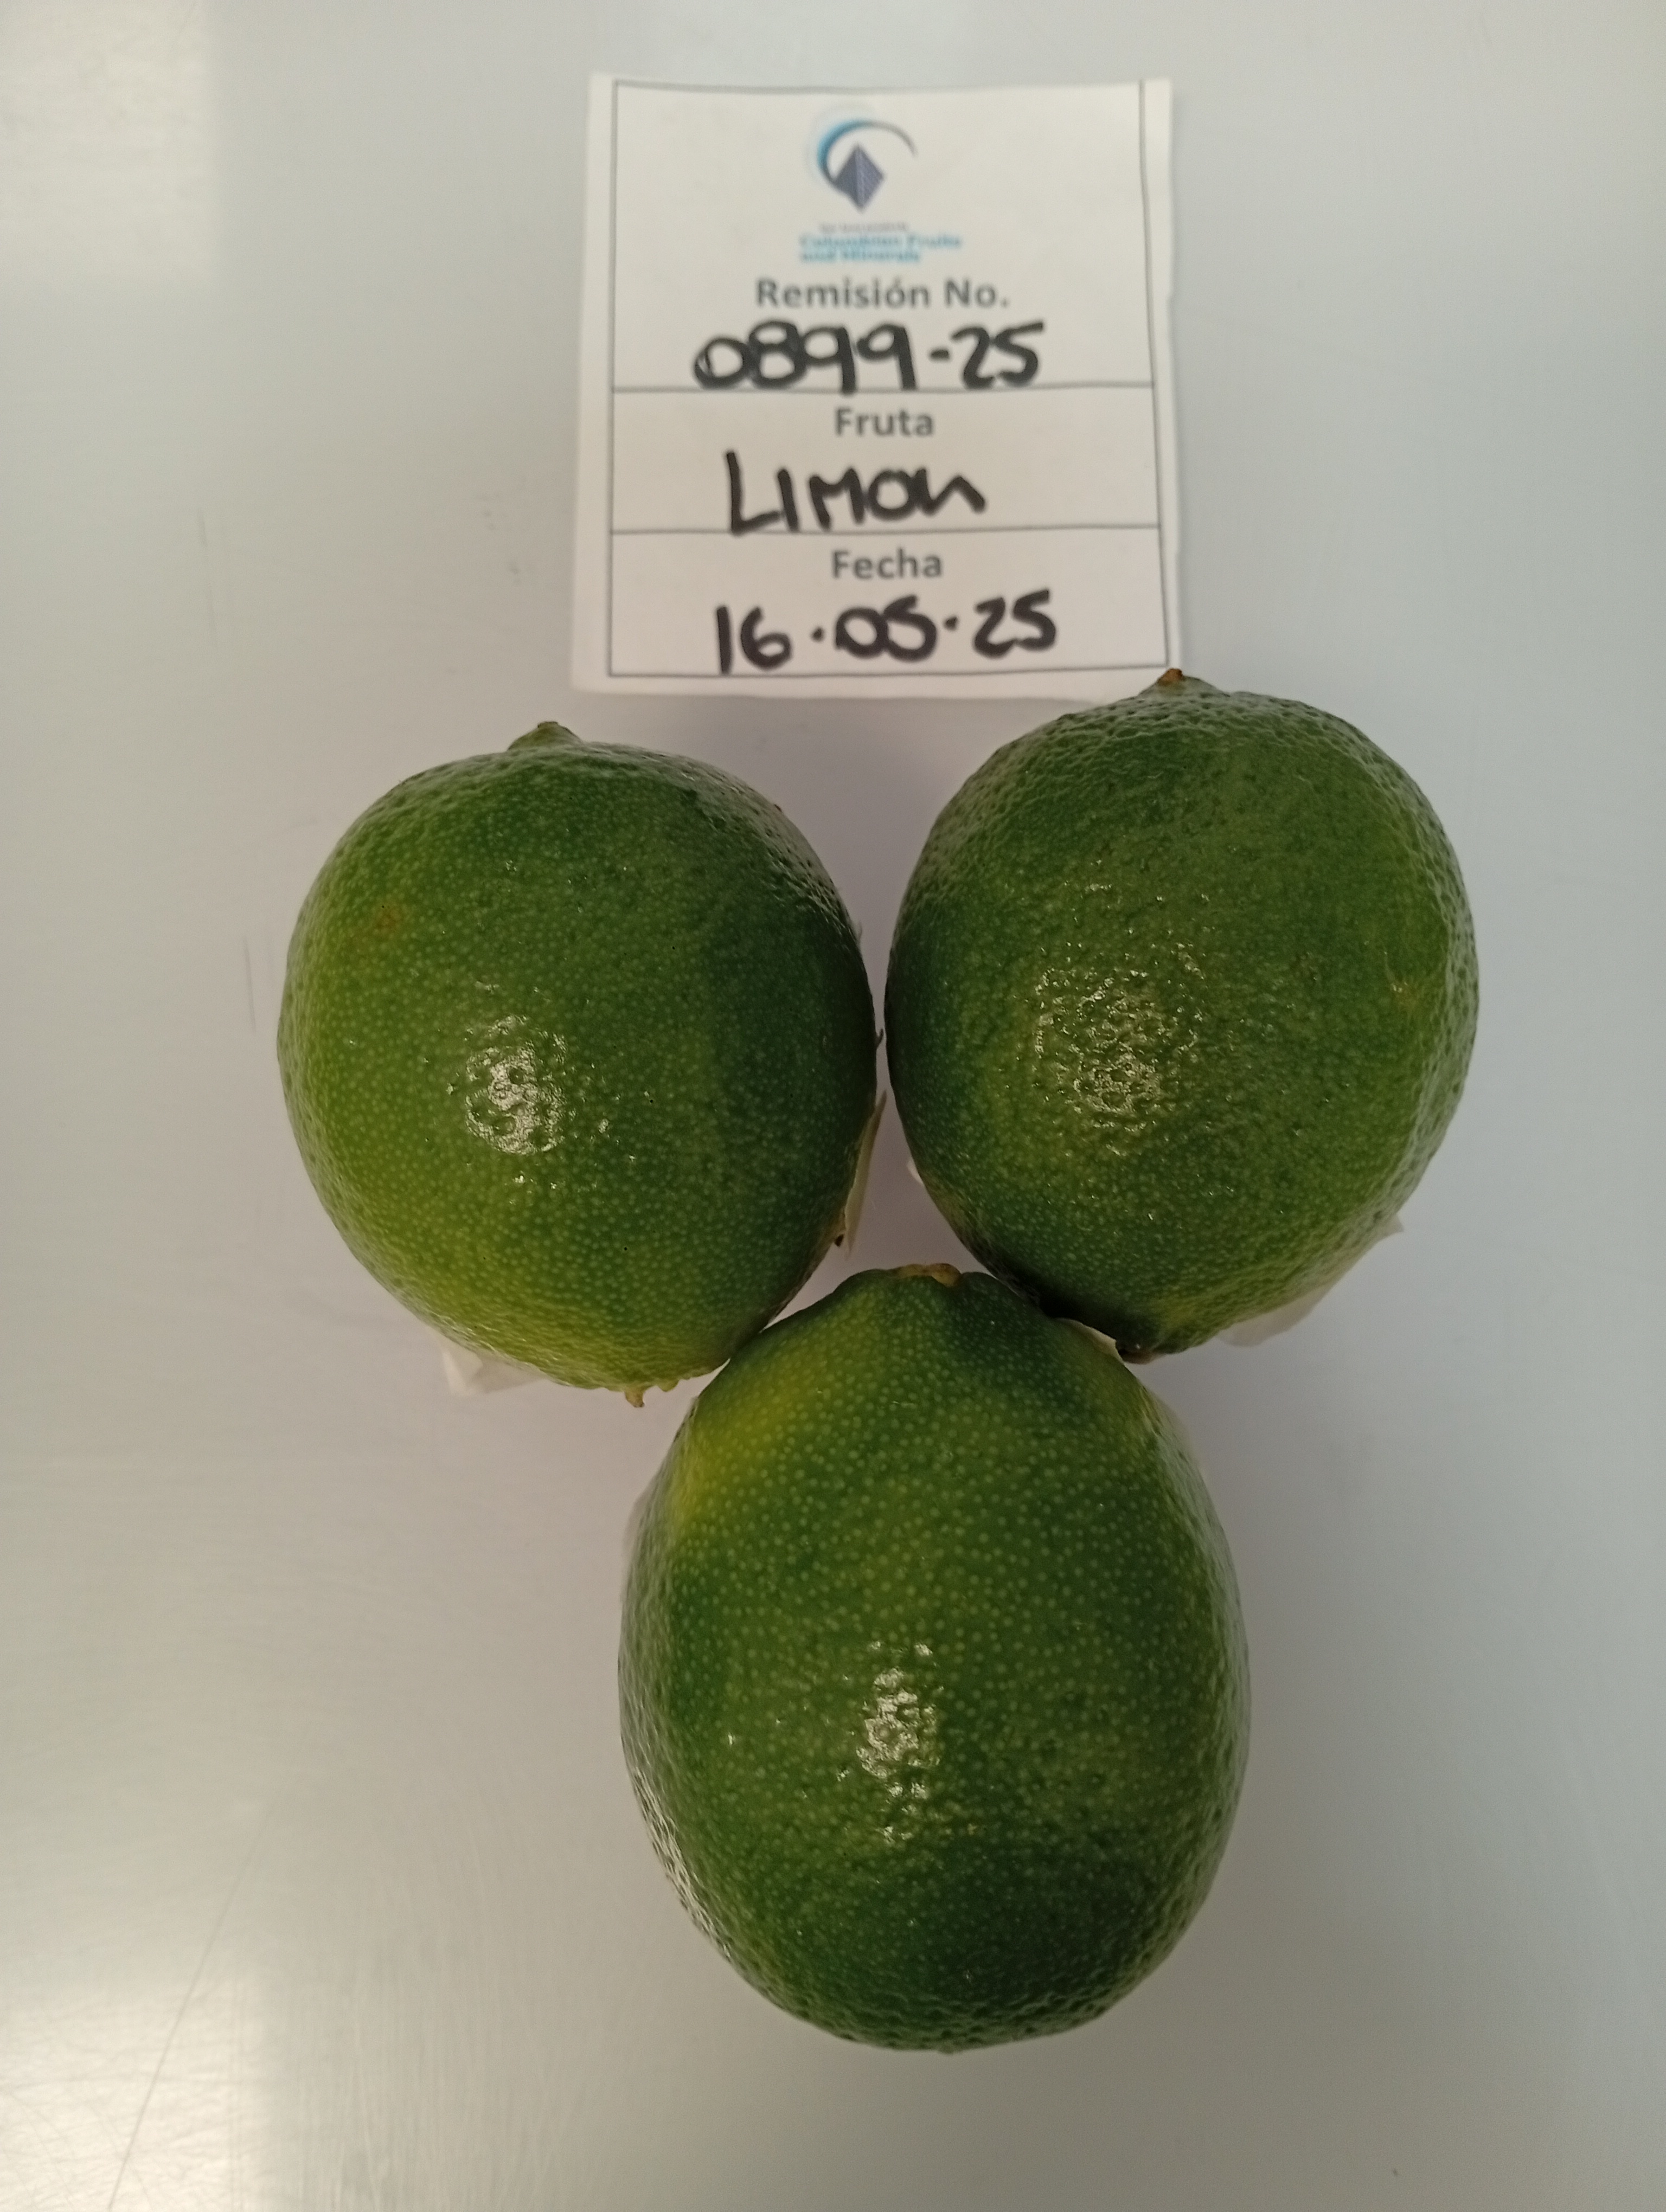 Colombian Fruits
and Minerals
Remisión No.
0899-25
Fruta
LIMON
Fecha
16.05.25